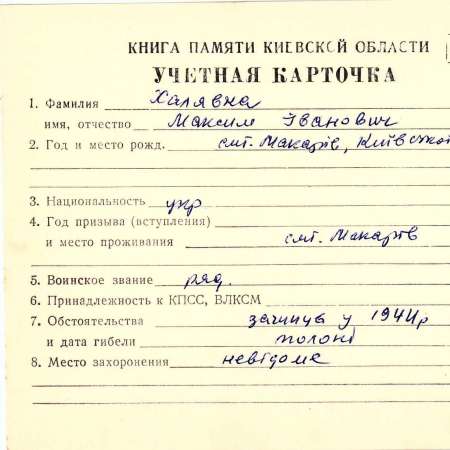 КНИГА ПАМЯТИ КИЕВСКОЙ ОБЛАСТИ
УЧЕТНАЯ КАРТОЧКА
1. Фамилия Халявка
имя, отчество Максим Іванович
2. Год и место рожд. смт. Макарів, Київської
3. Национальность укр
4. Год призыва (вступления)
и место проживания смт. Макарів
5. Воинское звание ряд.
6. Принадлежность к КПСС, ВЛКСМ
7. Обстоятельства загинув у 1944р
и дата гибели полоні
8. Место захоронения невідоме